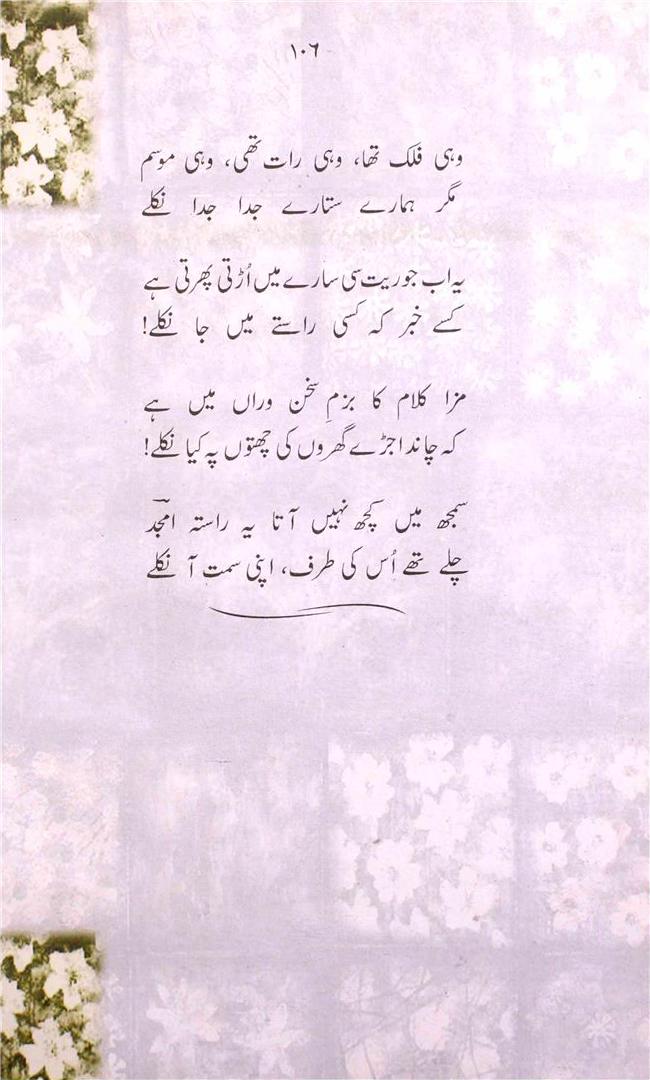 ۱۰۶
وہی فلک تھا، وہی رات تھی، وہی موسم
مگر ہمارے ستارے جدا جدا نکلے
یہ اب جو ریت سی سارے میں اُڑتی پھرتی ہے
کسے خبر کہ کسی راستے میں جا نکلے!
مزا کلام کا بزمِ سخن وراں میں ہے
کہ چاند اجڑے گھروں کی چھتوں پہ کیا نکلے!
سمجھ میں کچھ نہیں آتا یہ راستہ امجدؔ
چلے تھے اُس کی طرف، اپنی سمت آ نکلے